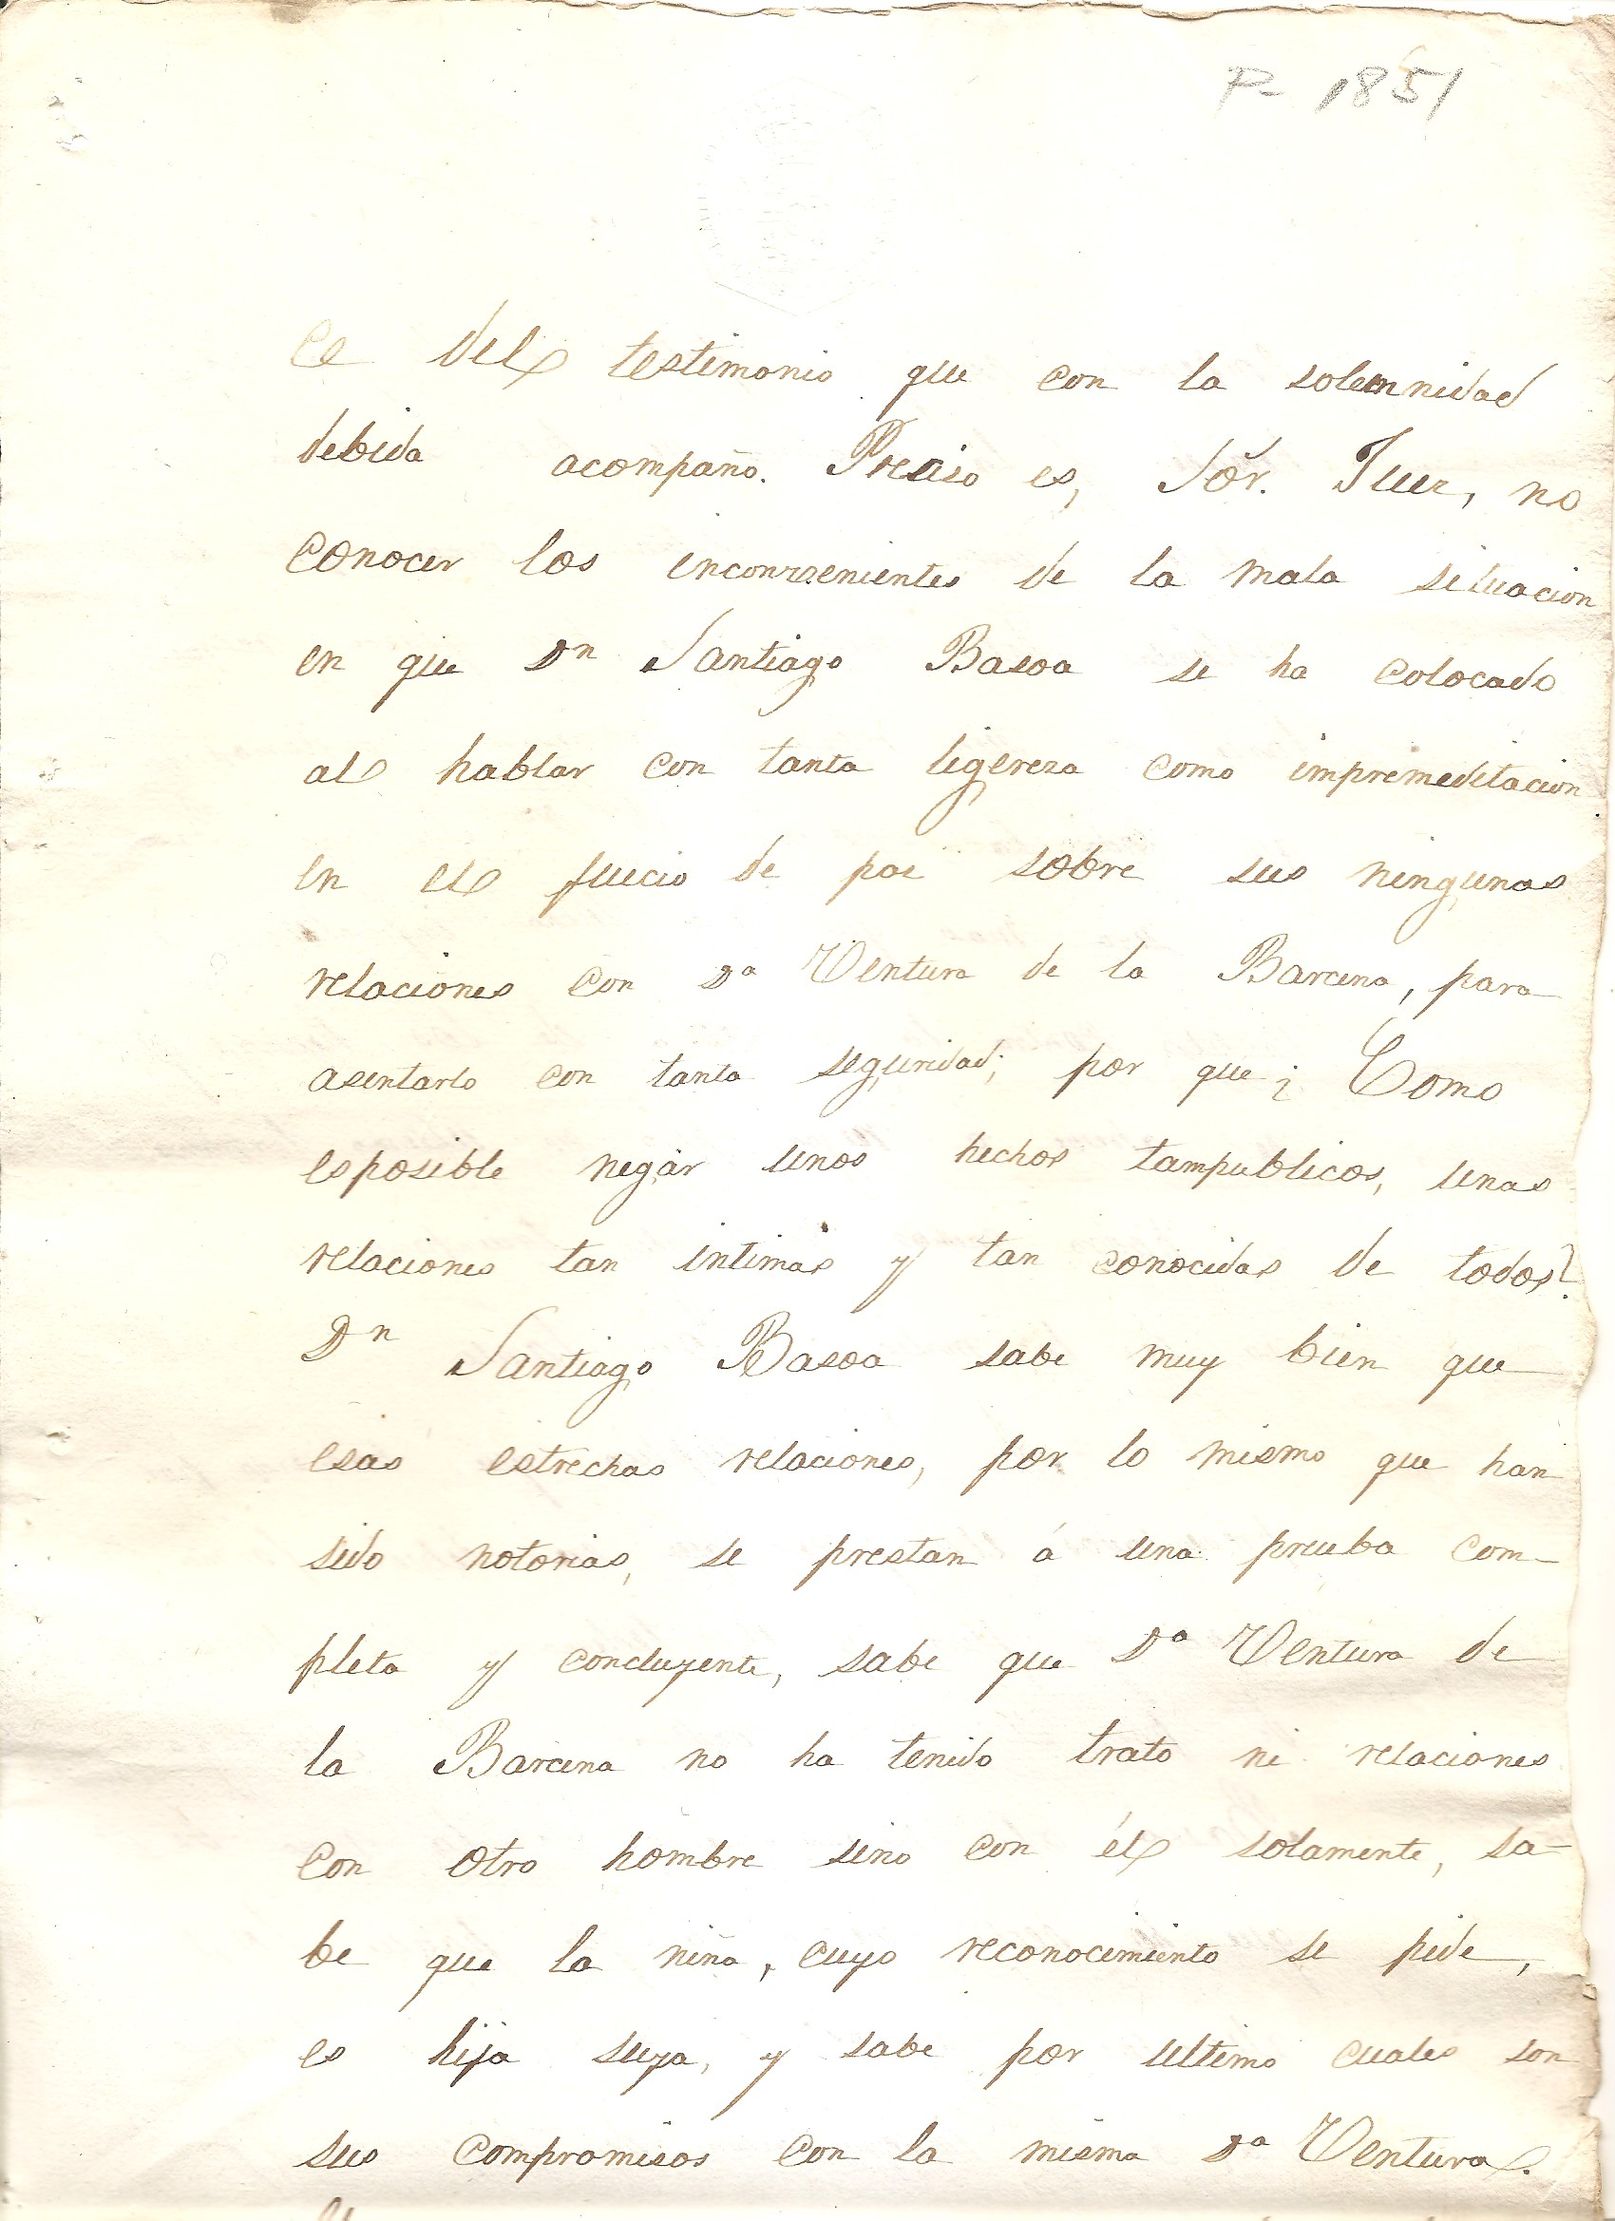 P- 1851
ce del testimonio que con la solemnidad
debida acompaño. Preciso es, Sõr. Juez, no
conocer los inconvenientes de la mala situacion
en que Dn Santiago Basoa se ha colocado
al hablar con tanta ligereza como impremeditacion
en el juicio de paz sobre sus ningunas
relaciones con Da Ventura de la Barcena, para
asentarlo con tanta seguridad; por que ¿Como
esposible negar unos hechos tampublicos, unas
relaciones tan intimas y tan conocidas de todos?
Dn Santiago Basoa sabe muy bien que
esas estrechas relaciones, por lo mismo que han
sido notorias, se prestan á una prueba com-
pleta y concluyente, sabe que Da Ventura de
la Barcena no ha tenido trato ni relaciones
con otro hombre sino con él solamente, sa-
be que la niña, cuyo reconocimiento se pide,
es hija suya, y sabe por ultimo cuales son
sus compromisos con la misma Da Ventura.